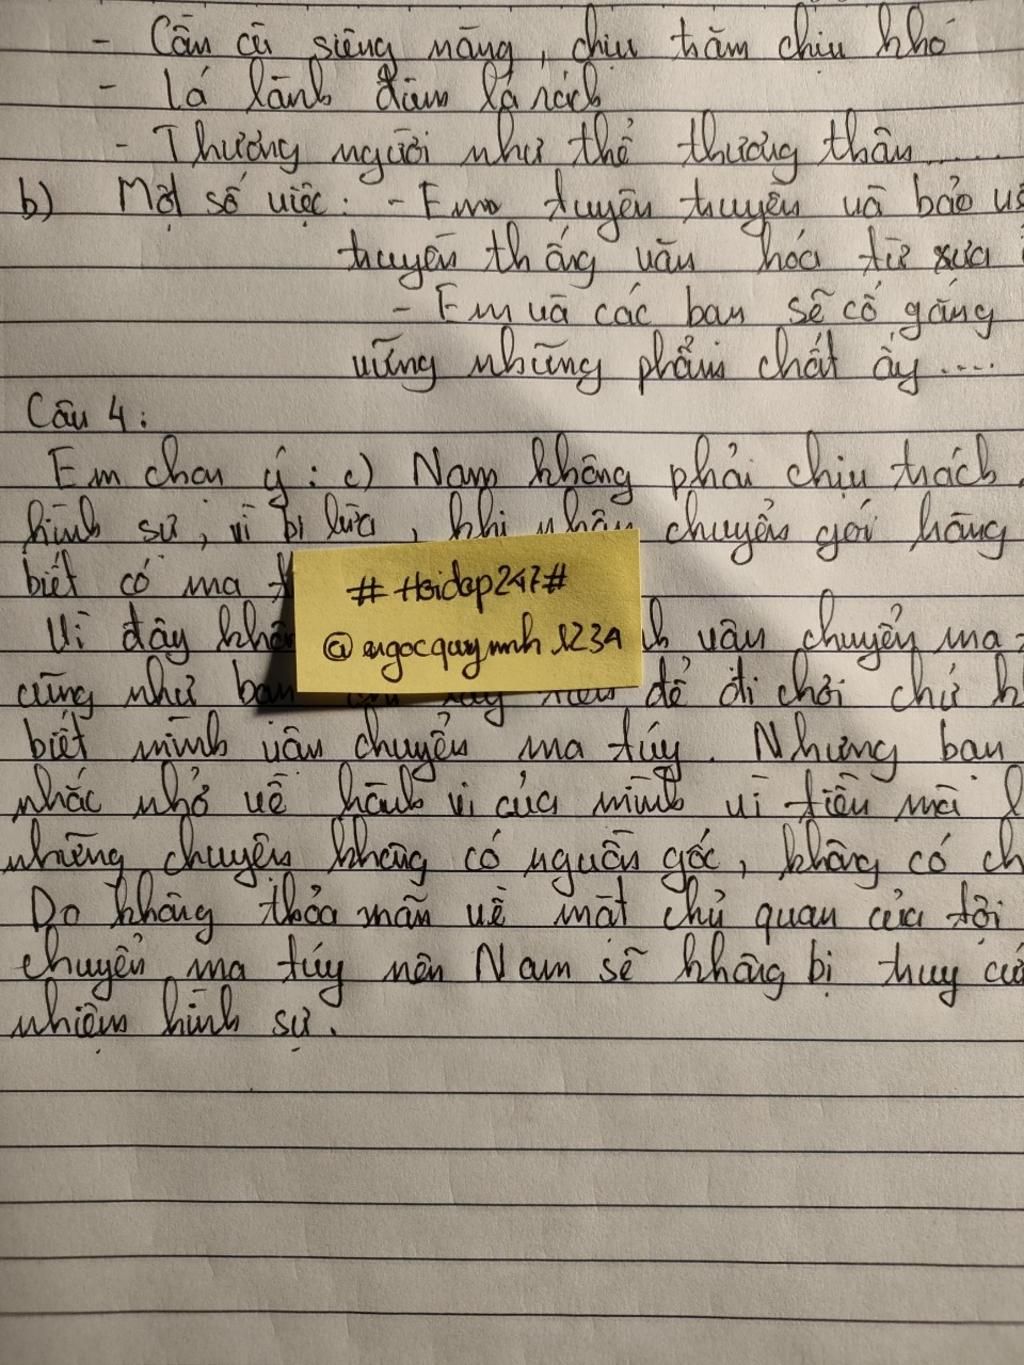 - Cần cù siêng năng, chịu trăm chịu khó
- Lá lành đùm lá rách
- Thương người như thể thương thân.....
b) Một số việc: - Em tuyên truyền và bảo vệ
truyền thống văn hóa từ xưa
- Em và các bạn sẽ cố gắng
vững những phẩm chất ấy....
Câu 4:
Em chọn ý: c) Nam không phải chịu trách
hình sự, vì bị lừa, khi nhận chuyển gói hàng
biết có ma
Vì đây vận chuyển ma
cũng như bạn để đi chơi chứ
biết mình vận chuyển ma túy. Nhưng bạn
nhắc nhở về hành vi của mình vì tiền mà
những chuyện không có nguồn gốc, không có
Do không thỏa mãn về mặt chủ quan của tội
chuyển ma túy nên Nam sẽ không bị truy cứu
nhiệm hình sự.
# Hoidap247#
@ngocquynnh1234